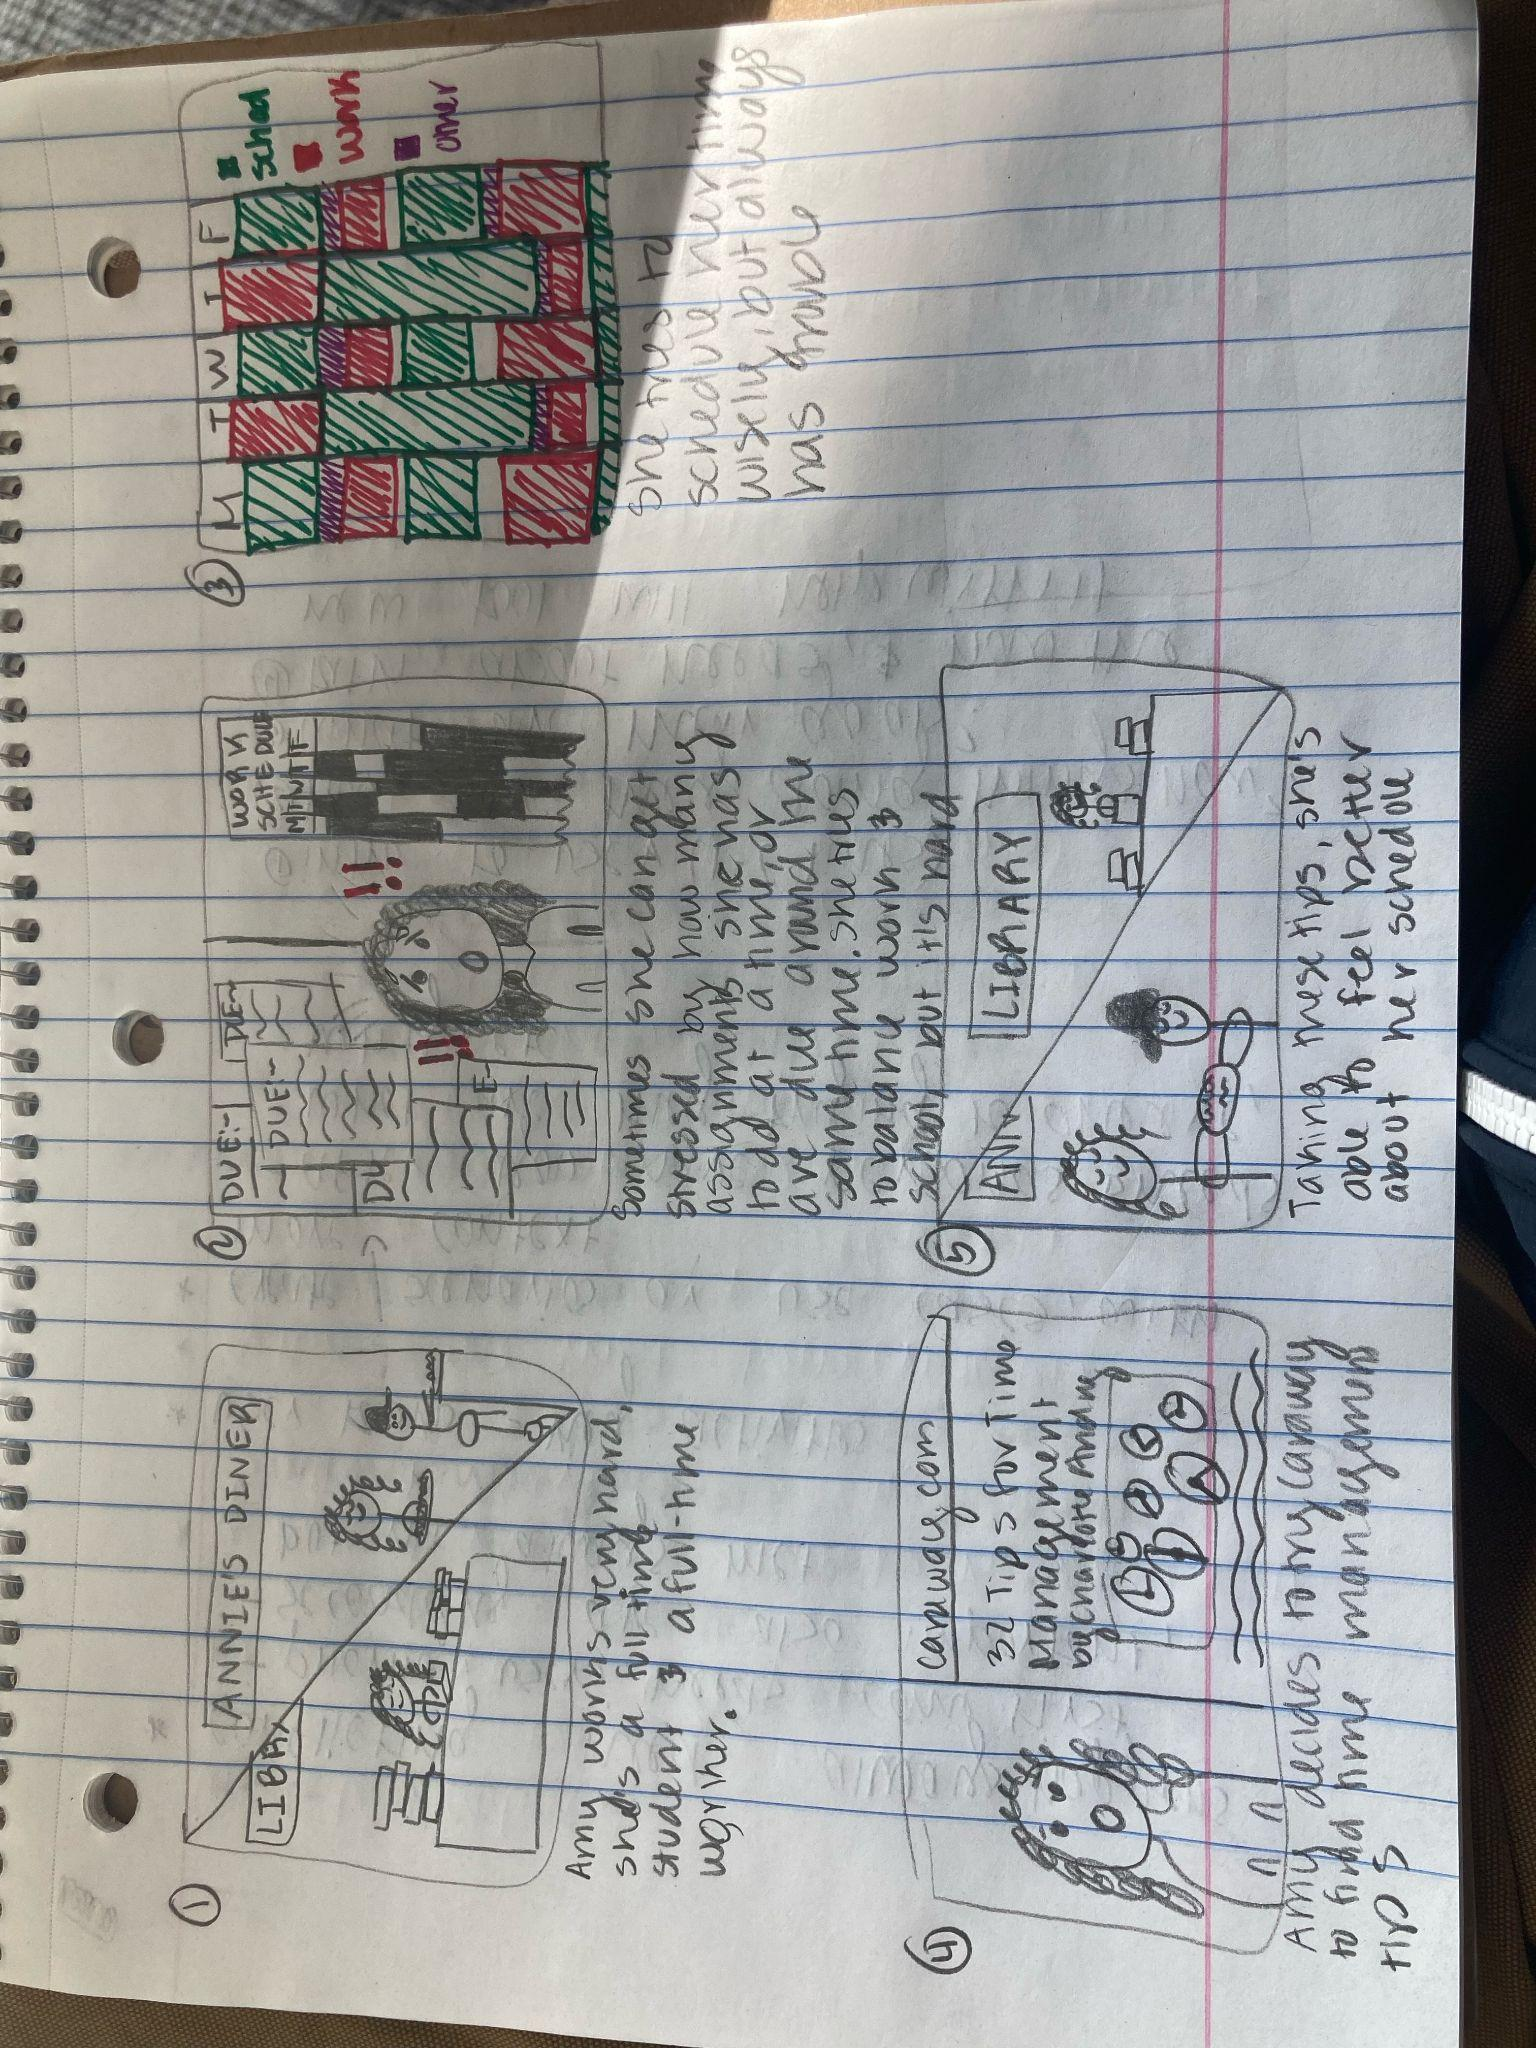 ①
LIBRAY
ANNIE'S DINER
Amy works very hard,
she's a full time
student & a full-time
worker.
②
DUE:~
DUE:~
DUE~
DU
E~
!!
!!
WORK
SCHEDULE
M T W T F
Sometimes she can get
stressed by how many
assignments she has
to do at a time, or
are due around the
same time. She tries
to balance work &
school, but it's hard
③
M T W T F
school
work
other
She tries to
schedule her time
wisely, but always
has trouble
④
caraway.com
32 Tips for Time
Management
by Charlotte Andrey
Amy decides to try caraway
to find time management
tips
⑤
ANN
LIBRARY
Taking these tips, she's
able to feel better
about her schedule